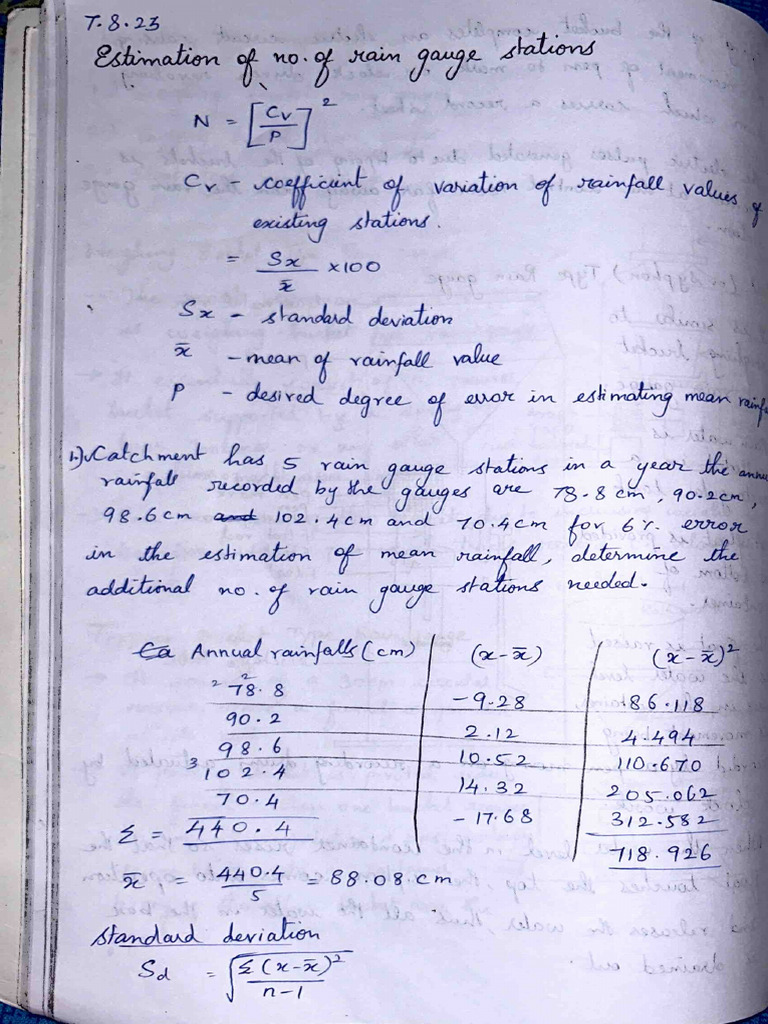 7.8.23
Estimation of no. of rain gauge stations
N = [Cv/P]²
Cv – coefficient of variation of rainfall values of
existing stations.
= Sx/x̄ ×100
Sx – standard deviation
x̄ – mean of rainfall value
P – desired degree of error in estimating mean rainfa
1.) Catchment has 5 rain gauge stations in a year the annu
rainfall recorded by the gauges are 78.8 cm, 90.2 cm,
98.6 cm and 102.4 cm and 70.4 cm for 6% error
in the estimation of mean rainfall, determine the
additional no. of rain gauge stations needed.
Ca Annual rainfalls (cm) (x-x̄) (x-x̄)²
2 2
78.8 -9.28 86.118
90.2 2.12 4.494
98.6 10.52 110.670
3
102.4 14.32 205.062
70.4 -17.68 312.582
Σ = 440.4 718.926
x̄ = 440.4/5 = 88.08 cm
standard deviation
Sd = √(Σ(x-x̄)²/n-1)